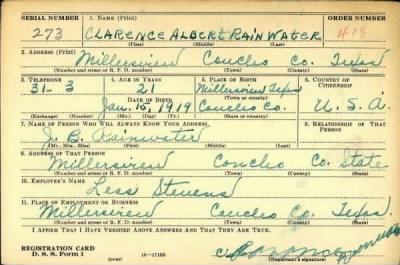 SERIAL NUMBER 1. NAME (Print) ORDER NUMBER
273 CLARENCE ALBERT RAINWATER 418
(First) (Middle) (Last)
2. ADDRESS (Print)
Millersview Concho Co. Texas
(Number and street or R. F. D. number) (Town) (County) (State)
3. TELEPHONE 4. AGE IN YEARS 5. PLACE OF BIRTH 6. COUNTRY OF CITIZENSHIP
31-3 21 Millersview Texas
(Town or county)
DATE OF BIRTH
Jan. 15, 1919 Concho Co. U. S. A.
(Exchange) (Number) (Mo.) (Day) (Yr.) (State or country)
7. NAME OF PERSON WHO WILL ALWAYS KNOW YOUR ADDRESS 8. RELATIONSHIP OF THAT PERSON
J. B. Rainwater
(Mr., Mrs., Miss) (First) (Middle) (Last)
9. ADDRESS OF THAT PERSON
Millersview Concho Co. State
(Number and street or R. F. D. number) (Town) (County) (State)
10. EMPLOYER'S NAME
Less Stevens
11. PLACE OF EMPLOYMENT OR BUSINESS
Millersview Concho Co. Texas.
(Number and street or R. F. D. number) (Town) (County) (State)
I AFFIRM THAT I HAVE VERIFIED ABOVE ANSWERS AND THAT THEY ARE TRUE.
REGISTRATION CARD
D. S. S. Form 1 (over) 16—17105 Registrant's signature